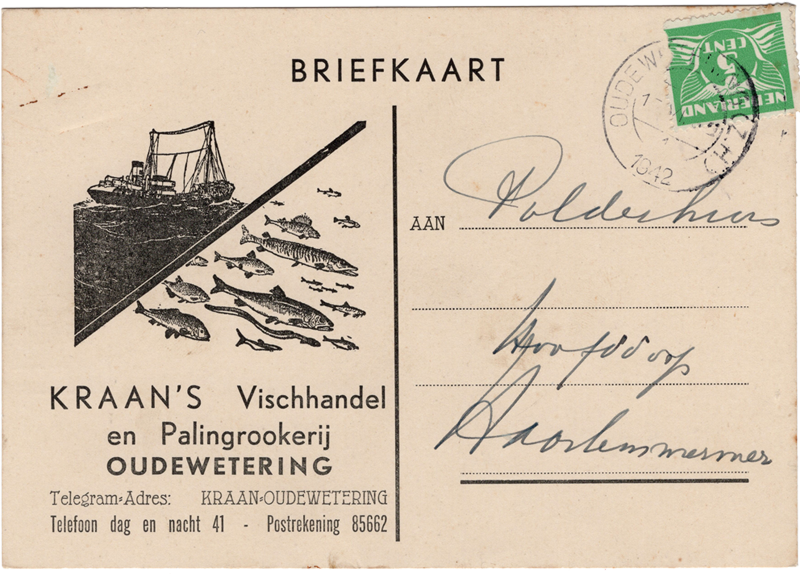 BRIEFKAART
KRAAN'S Vischhandel
en Palingrookerij
OUDEWETERING
Telegram-Adres: KRAAN-OUDEWETERING
Telefoon dag en nacht 41 - Postrekening 85662
NEDERLAND
5
CENT
1942
AAN Polderhuis
Hoofddorp
Haarlemmermeer